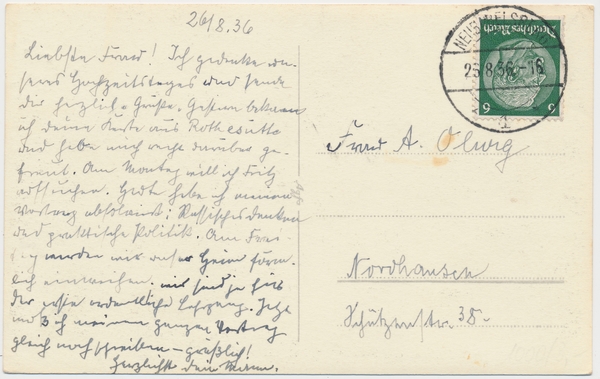 26/8.36
Liebste Frau! Ich gedenke un-
seres Hochzeitstages und sende
dir herzliche Grüße. Gestern bekam
ich deine Karte aus Rothesütte
und habe mich recht darüber ge-
freut. Am Montag will ich Fritz
aufsuchen. Heute habe ich meinen
Vortrag absolviert: Russisches denken
und praktische Politik. Am Frei-
tag werden wir unser Heim förm-
lich einweihen. wir sind ja hier
der erste ordentliche Lehrgang. Jetzt
muß ich meinen ganzen Vortrag
gleich noch schreiben – gräßlich!
Herzlichst dein Mann.
Deutsches Reich
6 6
25.8.36.-18
1
Frau A.
Nordhausen
Schützenstr. 38.